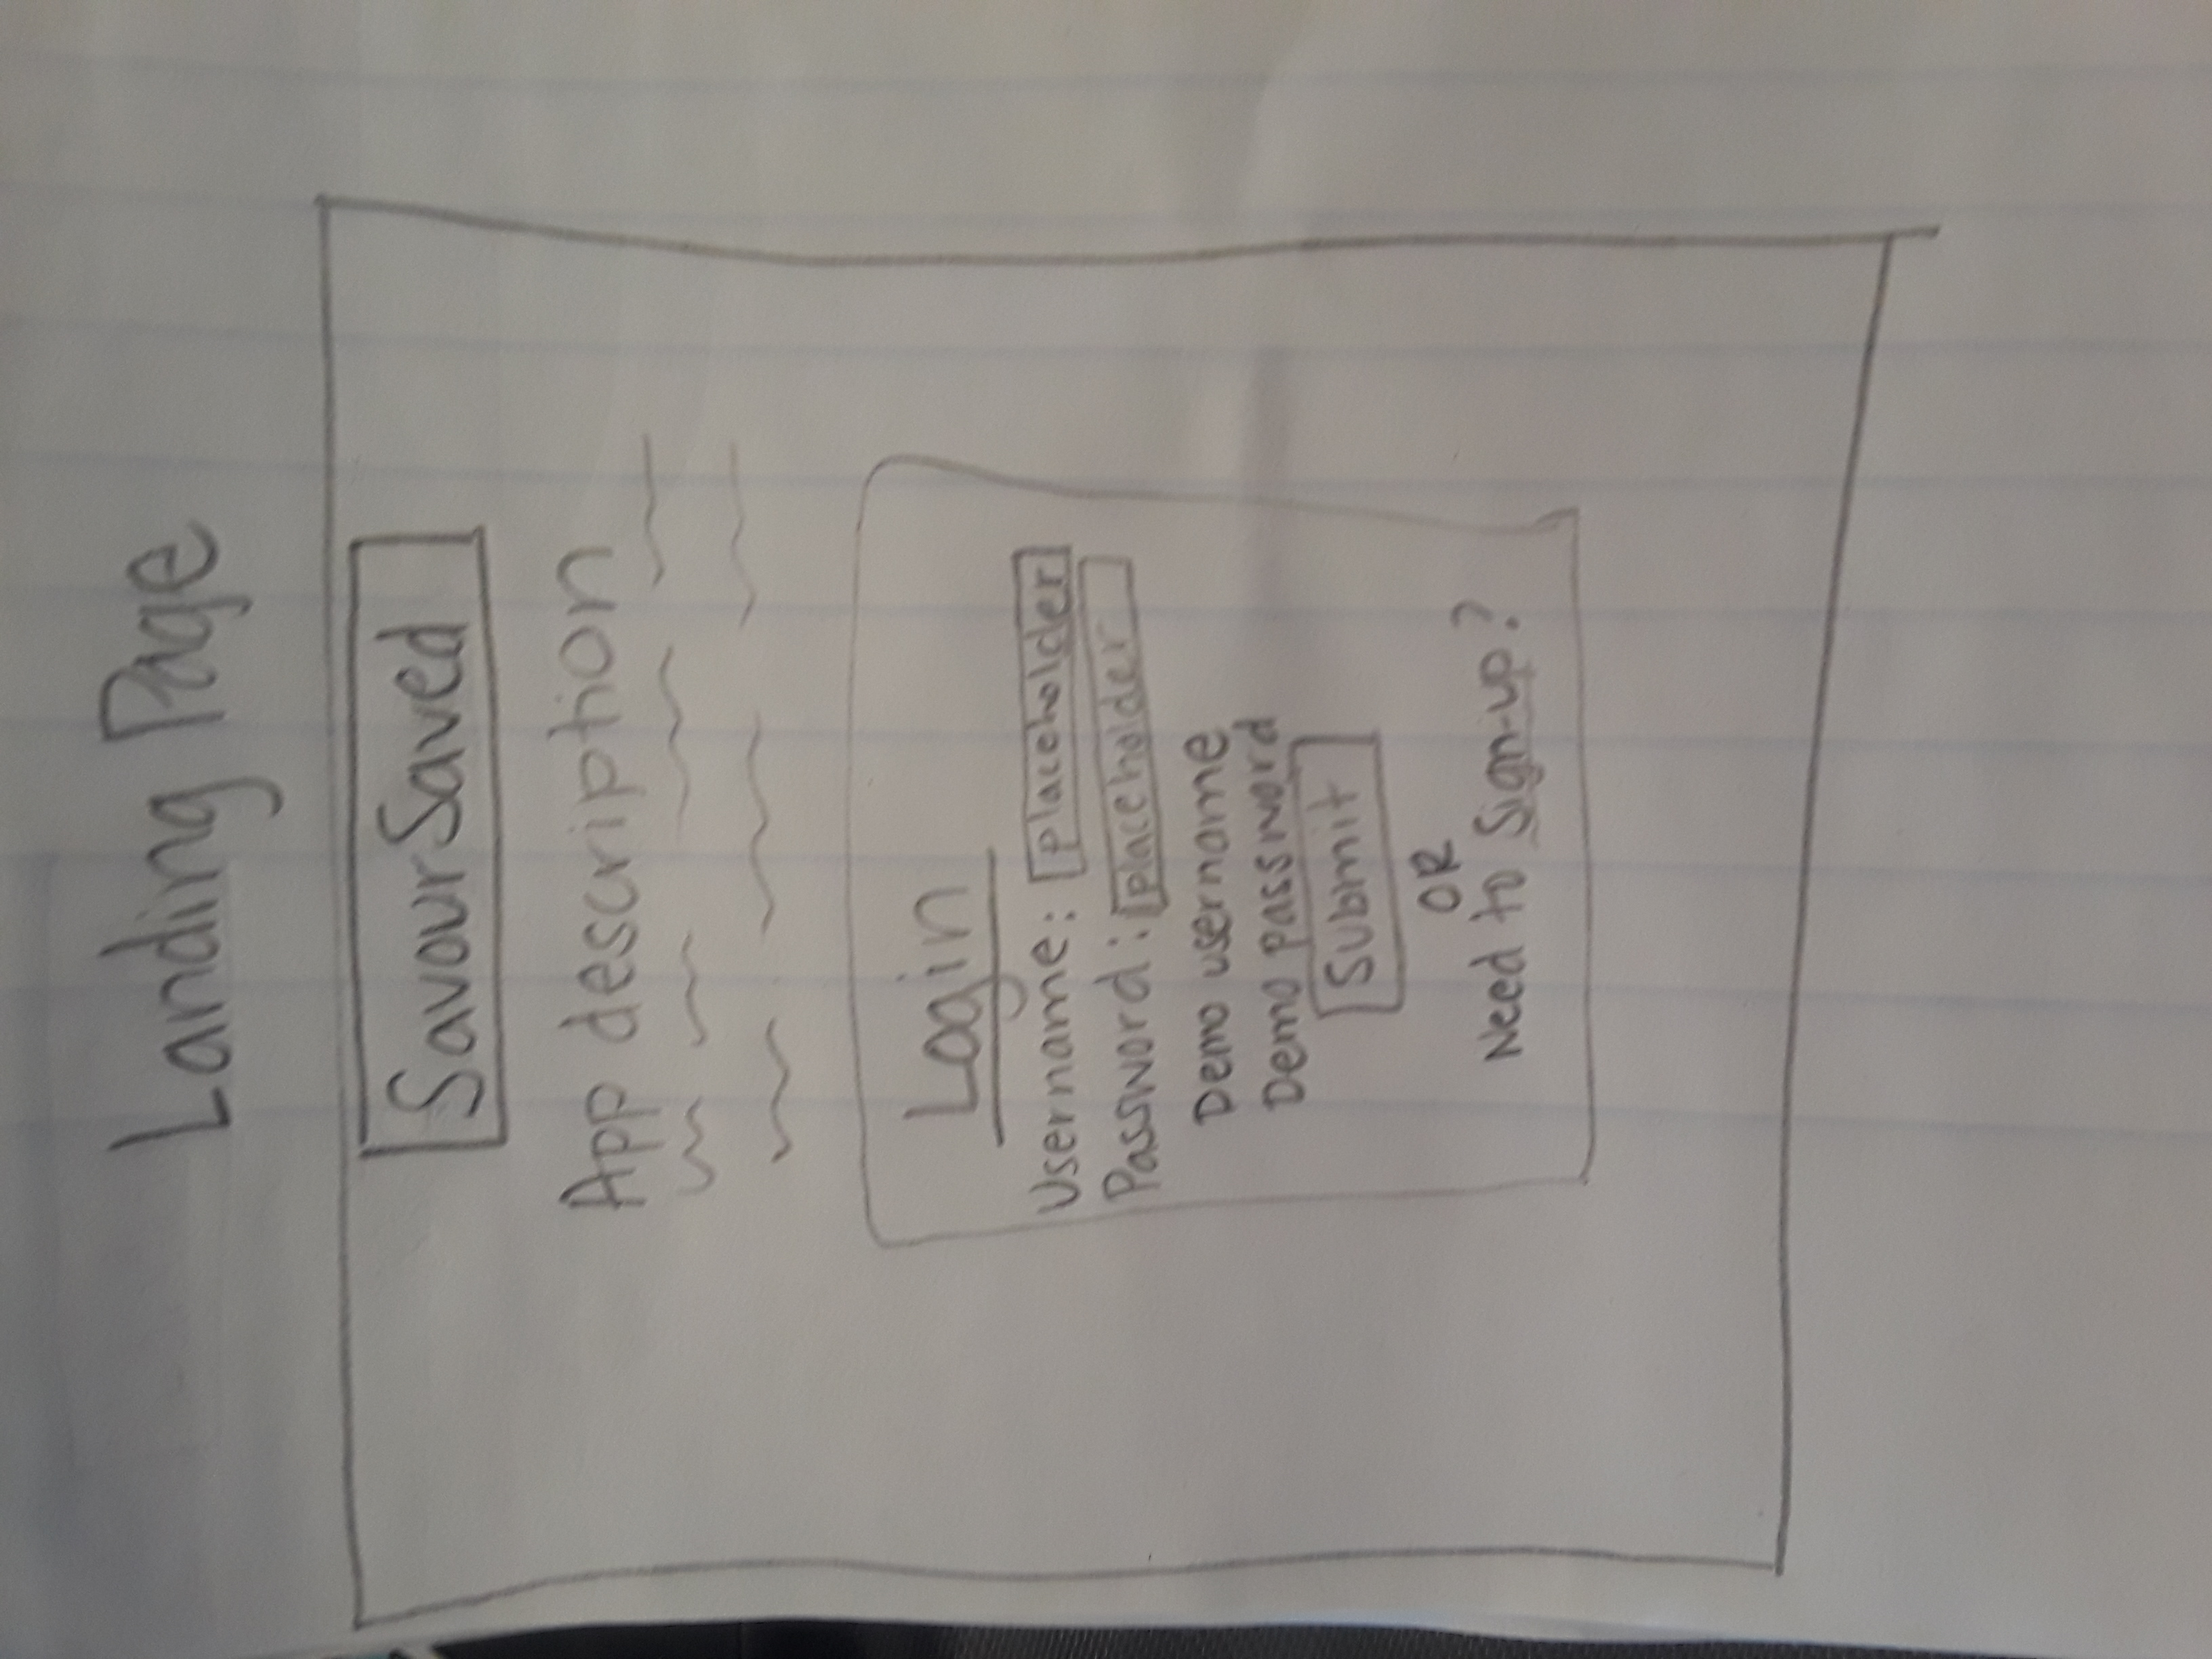 Landing Page
SavourSaved
App description
Login
Username: placeholder
Password: placeholder
Demo username
Demo password
Submit
OR
Need to Sign-up?